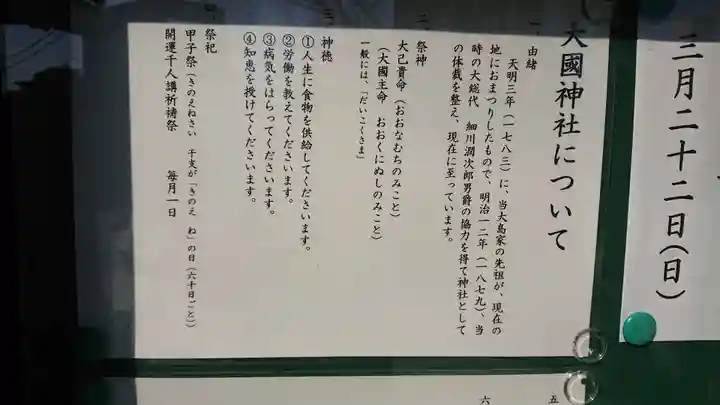 三月二十二日(日)
大國神社について
一、由緒
天明三年(一七八三)に、当大島家の先祖が、現在の
地におまつりしたもので、明治一二年(一八七九)、当
時の大総代 細川潤次郎男爵の協力を得て神社として
の体裁を整え、現在に至っています。
二、祭神
大己貴命(おおなむちのみこと)
(大國主命 おおくにぬしのみこと)
一般には、「だいこくさま」
三、神徳
①人生に食物を供給してくださいます。
②労働を教えてくださいます。
③病気をはらってくださいます。
④知恵を授けてくださいます。
祭祀
甲子祭(きのえねさい 干支が「きのえ ね」の日(六十日ごと))
開運千人講祈祷祭 毎月一日
五
六